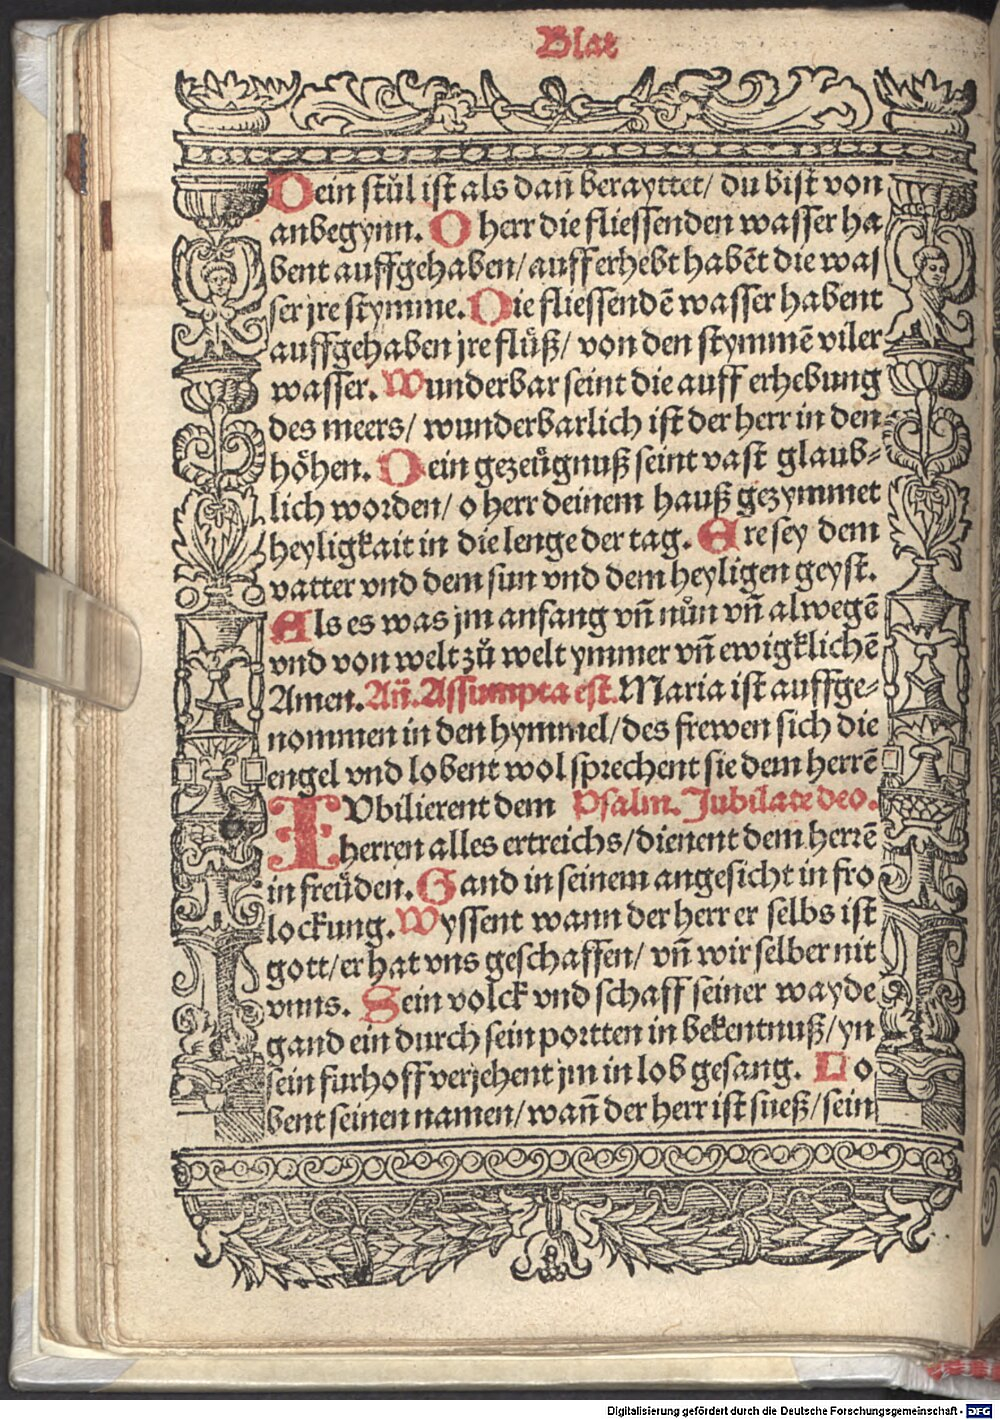 Blat
Dein stůl ist als dañ berayttet/ du bist von
anbegynn. O herr die fliessenden wasser ha
bent auffgehaben/ auff erhebt habēt die was
ser jre stymme. Die fliessendē wasser habent
auffgehaben jre flüß/ von den stymmē viler
wasser. Wunderbar seint die auff erhebung
des meers/ wunderbarlich ist der herr in den
höhen. Dein gezeügnuß seint vast glaub⸗
lich worden/ o herr deinem hauß gezymmet
heyligkait in die lenge der tag. Ere sey dem
vatter vnd dem sun vnd dem heyligen geyst.
Als es was jm anfang vñ nůn vñ alwegē
vnd von welt zů welt ymmer vñ ewigklichē
Amen. Añ. Assumpta est. Maria ist auffge⸗
nommen in den hymmel/ des frewen sich die
engel vnd lobent wol sprechent sie dem herrē
IVbilierent dem Psalm. Jubilate deo.
herren alles ertreichs/ dienent dem herrē
in freüden. Gand in seinem angesicht in fro
lockung. Wyssent wann der herr er selbs ist
gott/ er hat vns geschaffen/ vñ wir selber nit
vnns. Sein volck vnd schaff seiner wayde
gand ein durch sein portten in bekentnuß/ yn
sein furhoff verjehent jm in lob gesang. Lo
bent seinen namen/ wañ der herr ist sueß/ sein
Digitalisierung gefördert durch die Deutsche Forschungsgemeinschaft - DFG